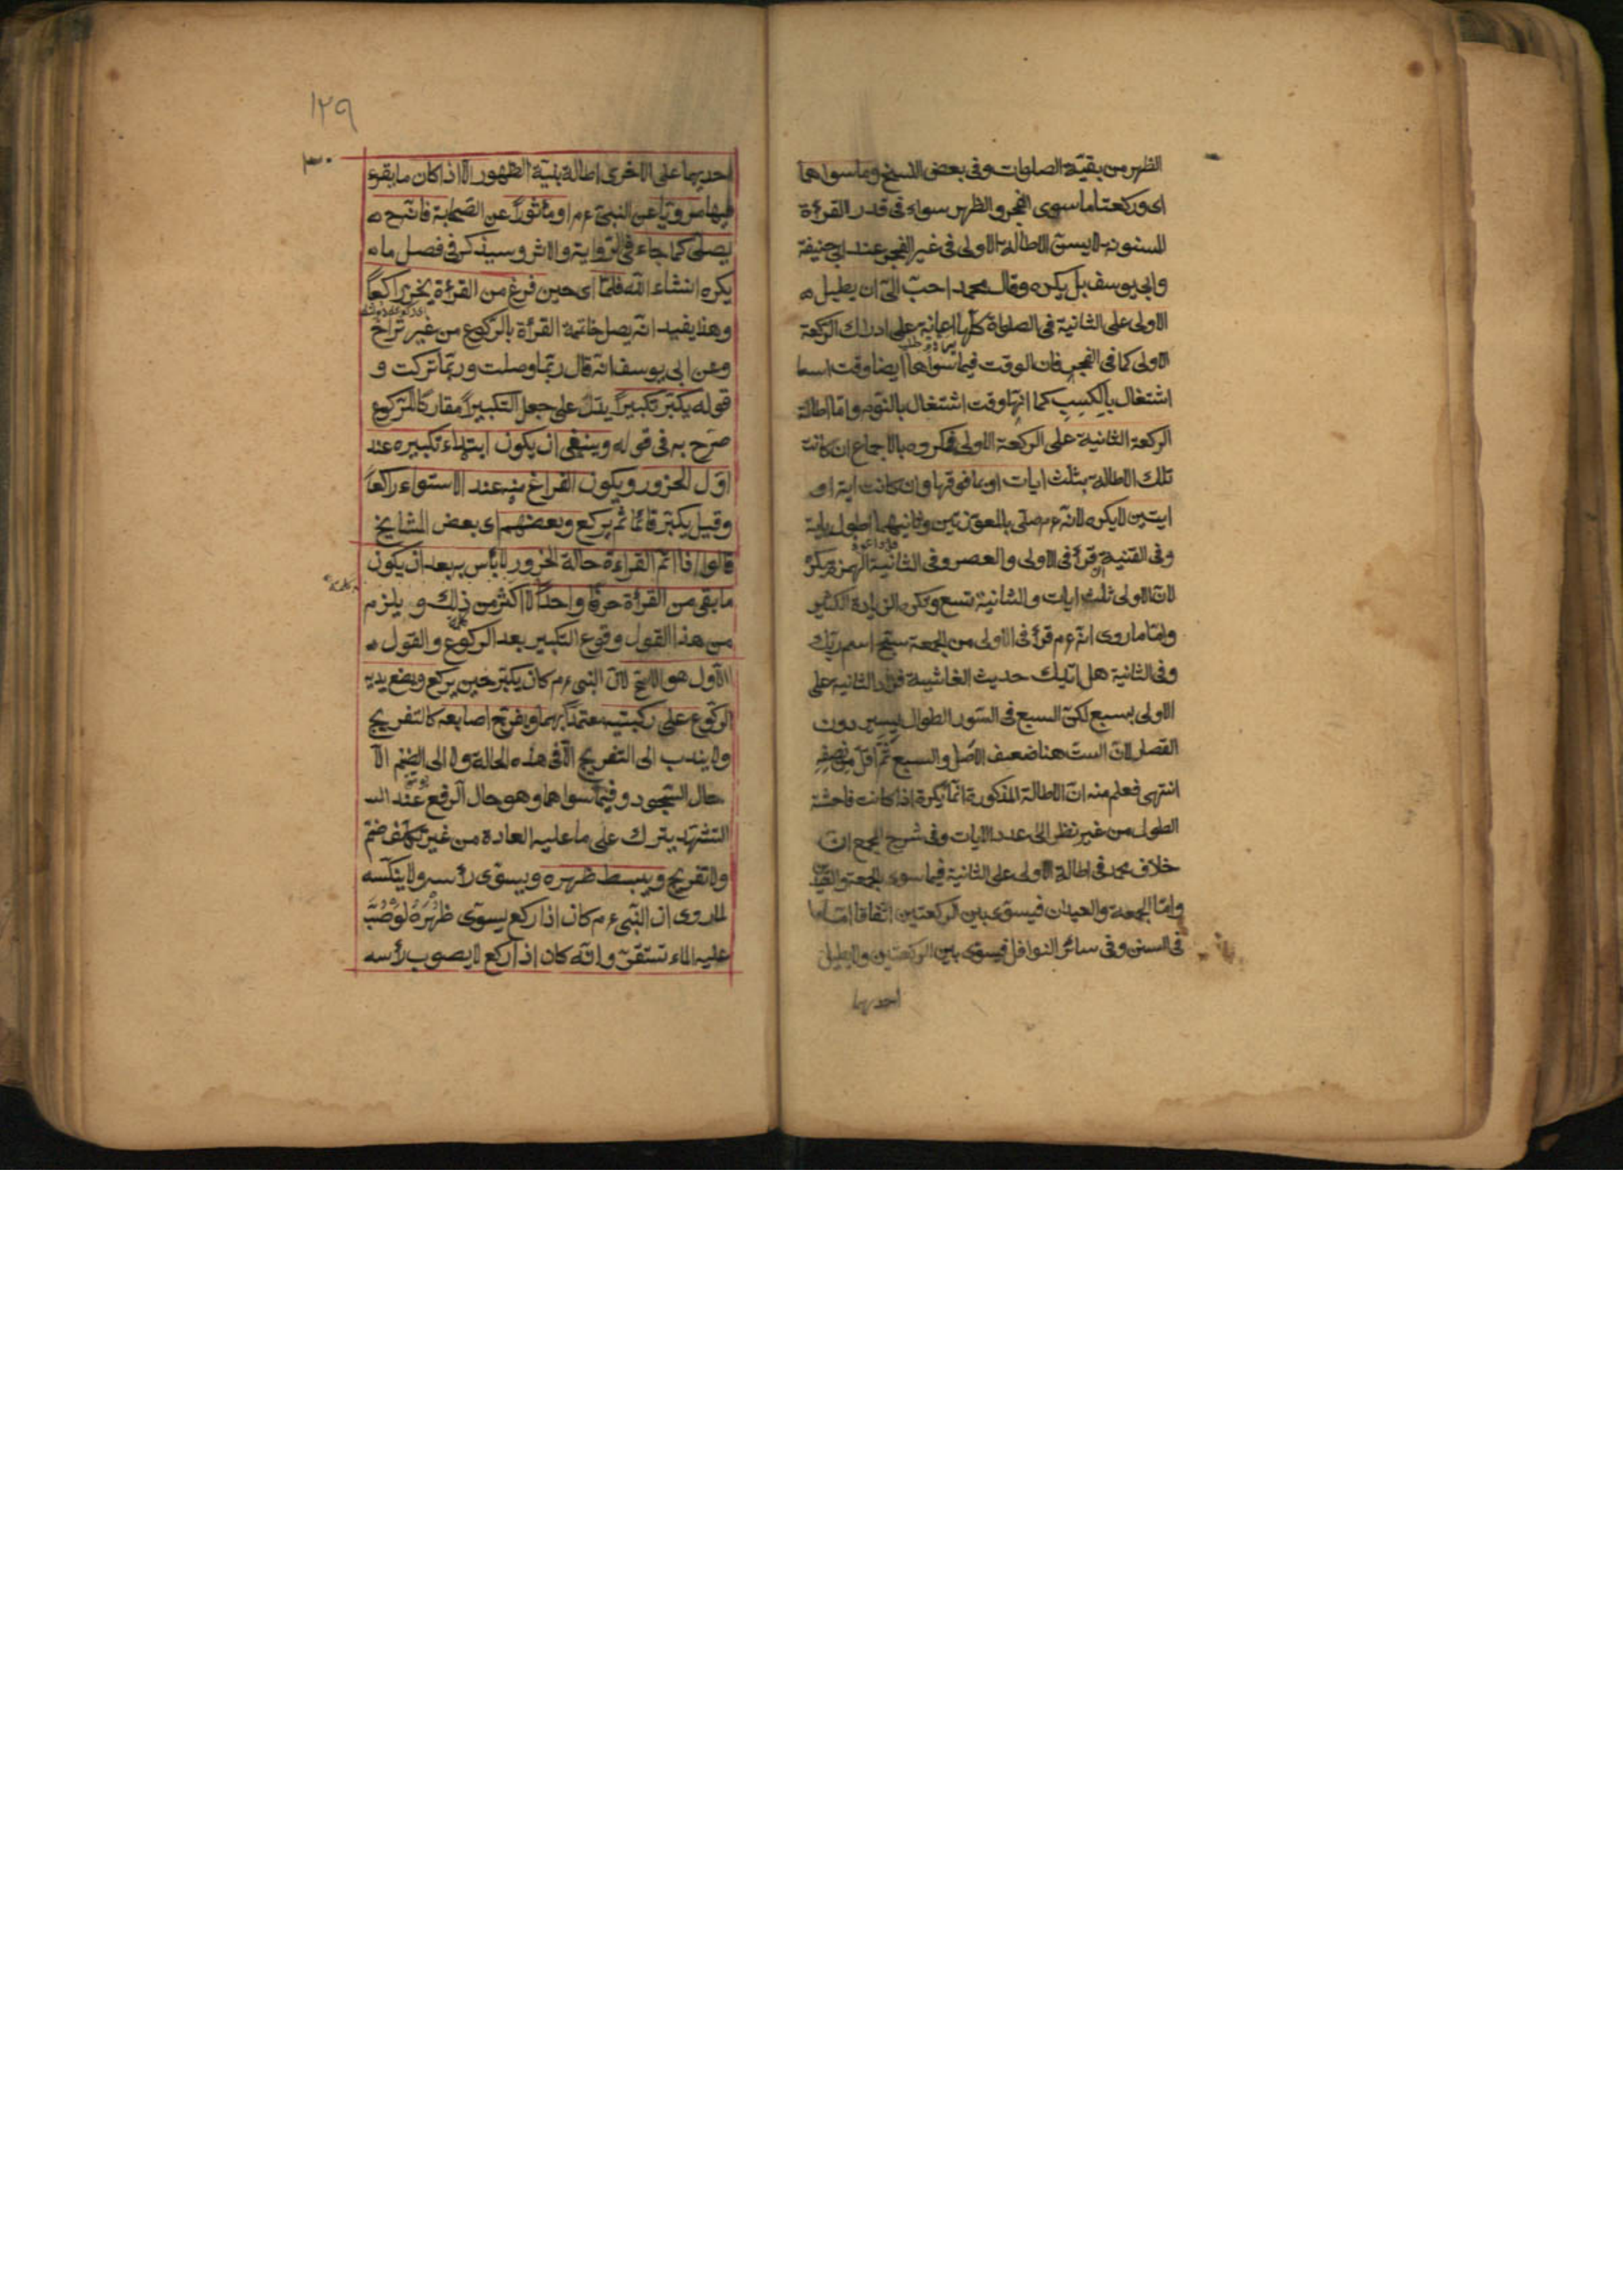 الظهر من بقية الصلوات وفى بعض النسخ وما سواهما
اى وركعتا ما سوى الفجر والظهر سواء فى قدر القرأة
المسنونة لايسن الاطالة الاولى فى غير الفجر عند ابى حنيفة
وابى يوسف بل يكره وقال محمد احب الىّ ان يطيل
الاولى على الثانية فى الصلوة كلها اعانة على ادراك الركعة
الاولى كما فى الفجر فان الوقت فيما سواها ايضا وقت
اشتغال بالكسب كما انها وقت اشتغال بالنوم واما اطالة
الركعة الثانية على الركعة الاولى فمكروه بالاجماع ان كانت
تلك الاطالة بثلث ايات او بما فوقها وان كانت اية او
ايتين لايكره لانه ءم صلى بالمعوّذتين وثانيهما اطول باية
وفى القنية قرأ فى الاولى والعصر وفى الثانية الهمزة يكره
لان الاولى ثلث ايات والثانية تسع وتكره الزيادة الكثير
واما ما روى انه ءم قرأ فى الاولى من الجمعة سبح اسم ربك
وفى الثانية هل اتيك حديث الغاشية فزاد الثانية على
الاولى بسبع لكن السبع فى السور الطوال يسير دون
القصار لان الست هنا ضعف الاصل والسبع ثم اقل من نصفه
انتهى فعلم منه ان الاطالة المذكورة انما يكره اذا كانت فاحشة
الطول من غير نظر الى عدد الايات وفى شرح المجمع ان
خلاف محمد فى اطالة الاولى على الثانية فيما سوى الجمعة والعيدين
واما الجمعة والعيدان فيسوى بين الركعتين اتفاقا
فى السنن وفى سائر النوافل فيسوى بين الركعتين ولا يطيل
احديهما
١٢٩
احديهما على الاخرى اطالة بنية الظهور الا اذا كان ما يقرء
فيها مرويّا عن النبى ءم او مأثورًا عن الصحابة فانه ح
يصلى كما جاء فى الرواية والاثر وسيذكر فى فصل ما
يكره انشاء الله فلمّا اى حين فرغ من القرأة يخرّ راكعًا
وهذا يفيد انه يصل خاتمة القرأة بالركوع من غير تراخ
وعن ابى يوسف انه قال ربما وصلت وربما تركت و
قوله يكبّر تكبيرًا يدلّ على جعل التكبير مقارنا للركوع
صرّح به فى قوله وينبغى ان يكون ابتداء تكبيره عند
اوّل الخرور ويكون الفراغ منه عند الاستواء راكعًا
وقيل يكبّر قائما ثم يركع وبعضهم اى بعض المشايخ
قالوا اذا اتم القراءة حالة الخرور لا بأس به بعد ان يكون
ما بقى من القرأة حرفًا واحدًا لا اكثر من ذلك و يلزم
من هذا القول وقوع التكبير بعد الركوع والقول
الاول هو الاصح لان النبى ءم كان يكبّر حين يركع ويضع يديه
الركوع على ركبتيه معتمدًا بهما ويفرّج اصابعه كالتفريج
ولا يندب الى التفريج الا فى هذه الحالة ولا الى الضم الا
حال السجود وفيما سواهما وهو حال الرفع عند
التشهد يترك على ما عليه العادة من غير تكلف ضم
ولا تفريج ويبسط ظهره ويسوّى رأسه ولا ينكسه
لما روى ان النبى ءم كان اذا ركع يسوّى ظهره لو صبّ
عليه الماء تستقرّ وانّه كان اذا ركع لا يصوب رأسه